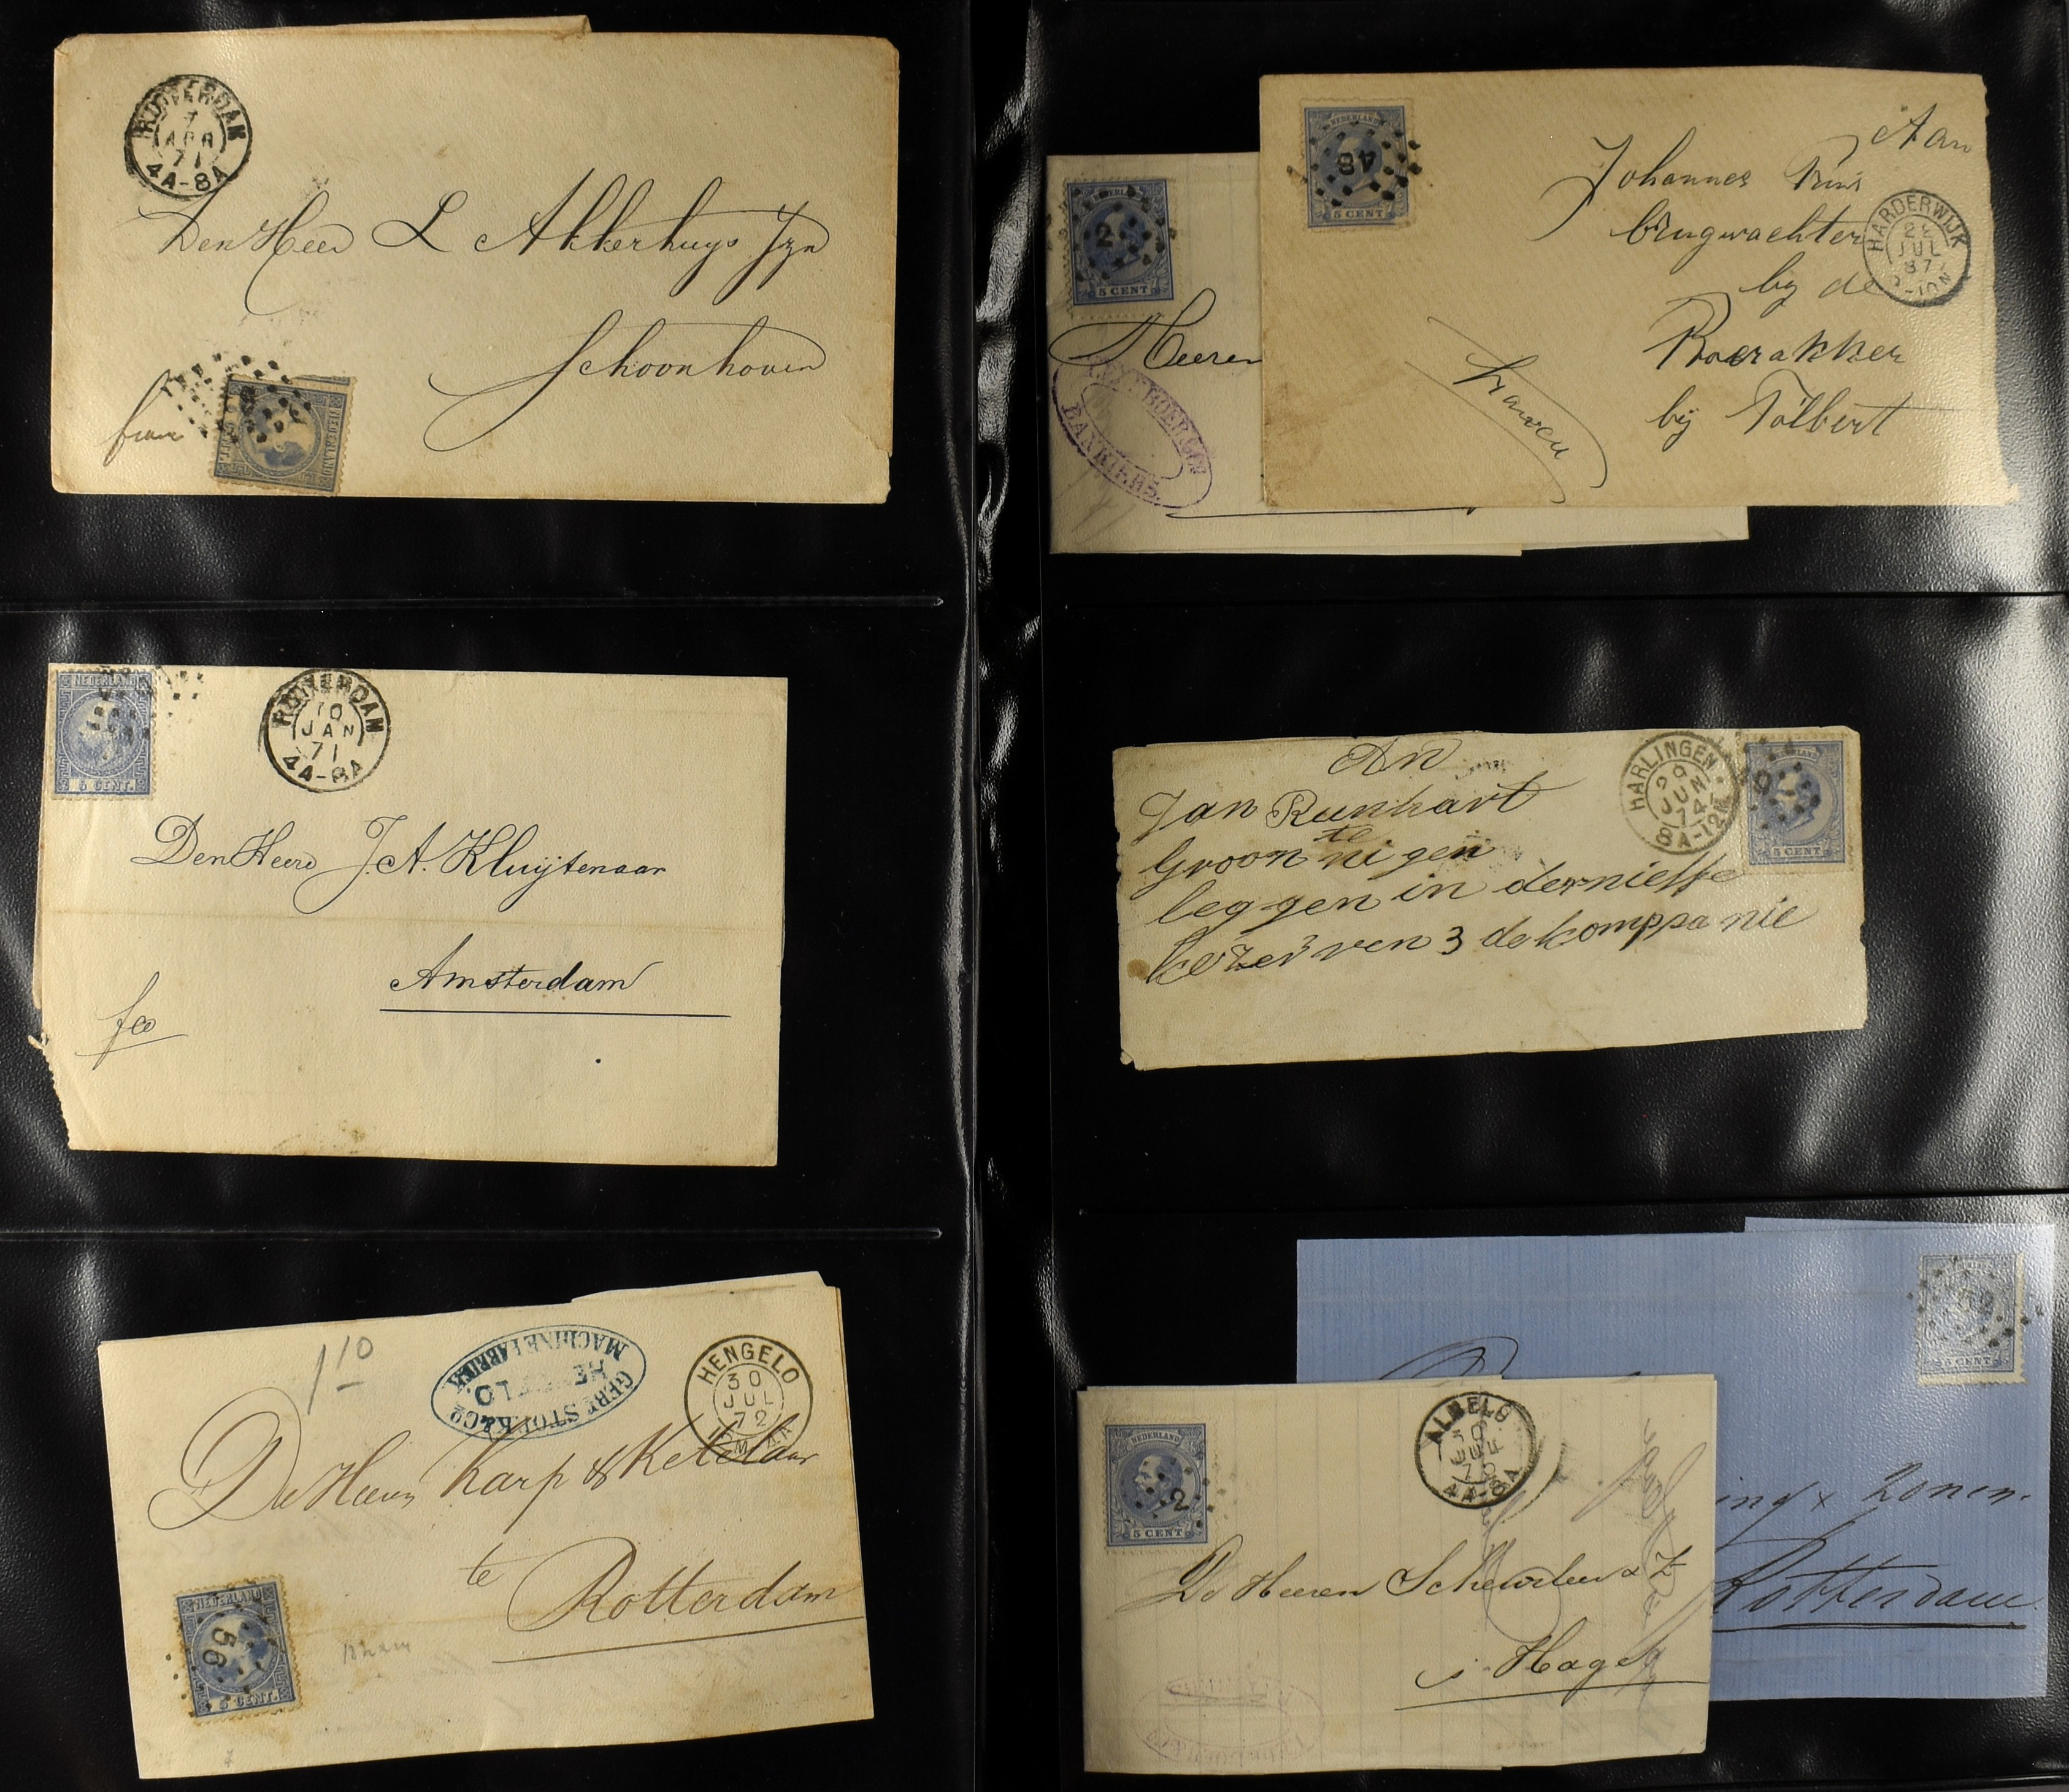 ROTTERDAM
7
APR
71
4A-8A
Den Heer L Akkerhuys Jzn
Schoonhoven
NEDERLAND
NEDERLAND
5 CENT.
ROTTERDAM
10
JAN
71
4A-8A
Den Heere J. A. Kluijtenaar
Amsterdam
fco
1 10
GEBR. STORK & Co
HENGELO.
MACHINEFABRIEK
HENGELO
30
JUL
72
De Heeren Karp & Ketelaar
te
Rotterdam
NEDERLAND
56
5 CENT.
2
5 CENT
Heeren
BANKIERS.
NEDERLAND
48
5 CENT
Aan
Johannes Prins
brugwachter
by de
Boerakker
bij Tolbert
HARDERWIJK
JUL
87
An
Jan Runhart
te
Groon ni gen
leggen in
3 de komppanie
HARLINGEN
29
JUN
74
8A-12M
49
5 CENT
59
5 CENT
ing & Zonen.
Rotterdam
NEDERLAND
2
5 CENT
ALMELO
30
JUL
4A-8A
De Heeren Scheurleer & Z
s Hage